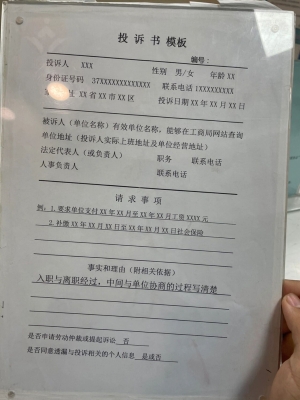 投诉书模板
编号：
投诉人 XXX 性别 男/女 年龄XX
身份证号码 37XXXXXXXXXXXXXX 联系电话 1XXXXXXXXXX
址 XX 省 XX 市 XX 区 投诉日期 XX 年 XX 月 XX 日
被诉人（单位名称）有效单位名称，能够在工商局网站查询
单位地址（投诉人实际上班地址及单位经营地址）
法定代表人（或负责人） 职务 联系电话
人事负责人 联系电话
请求事项
例：1.要求单位支付 XX 年 XX 月至 XX 年 XX 月工资 XXXX 元
2.补缴 XX 年 XX 月 XX 日至 XX 年 XX 月 XX 日社会保险
事实和理由（附相关依据）
入职与离职经过，中间与单位协商的过程写清楚
是否申请劳动仲裁或提起诉讼 否
是否同意透漏与投诉相关的个人信息 是或否